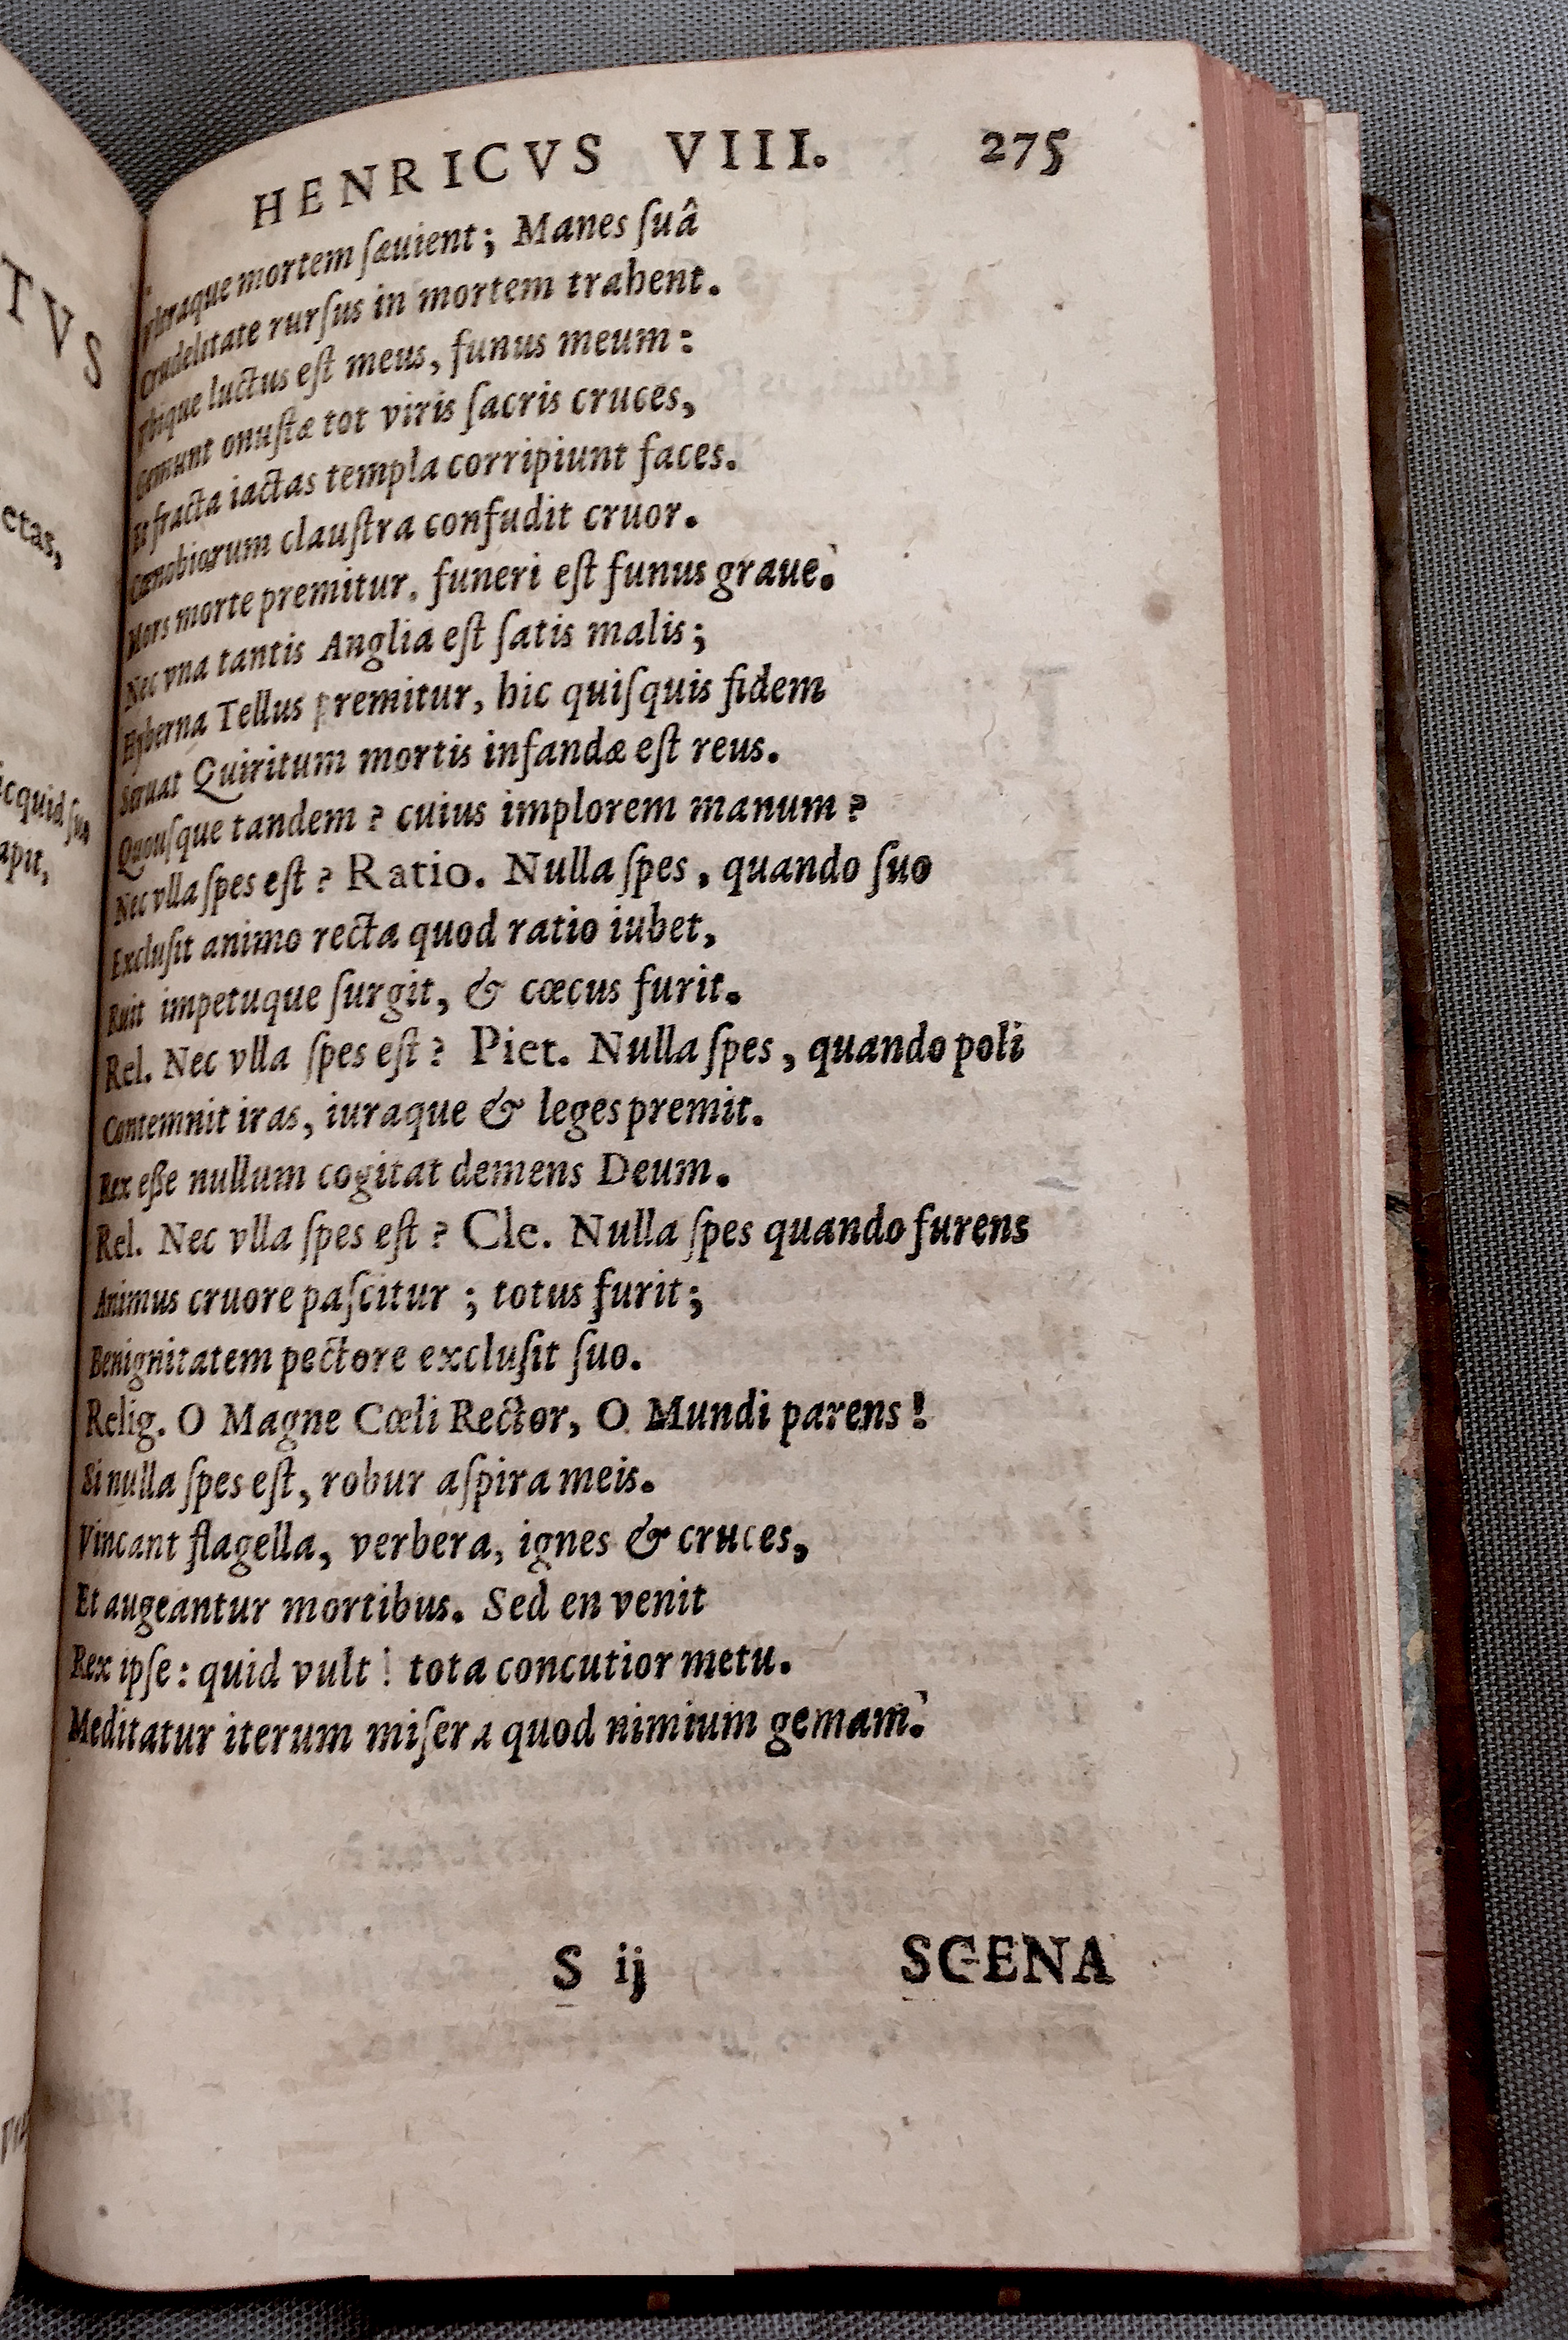 HENRICVS VIII. 275
Vltraque mortem ſæuient; Manes ſuâ
Crudelitate rurſus in mortem trahent.
Vbique luctus eſt meus, funus meum:
Gemunt onuſtæ tot viris ſacris cruces,
Et fracta iactas templa corripiunt faces.
Cœnobiorum clauſtra confudit cruor.
Mors morte premitur, funeri eſt funus graue.
Nec vna tantis Anglia eſt ſatis malis;
Hyberna Tellus premitur, hic quiſquis fidem
Seruat Quiritum mortis infandæ eſt reus.
Quouſque tandem? cuius implorem manum?
Nec vlla ſpes eſt? Ratio. Nulla ſpes, quando ſuo
Excluſit animo recta quod ratio iubet,
Ruit impetuque ſurgit, & cœcus furit.
Rel. Nec vlla ſpes eſt? Piet. Nulla ſpes, quando poli
Contemnit iras, iuraque & leges premit.
Rex eſſe nullum cogitat demens Deum.
Rel. Nec vlla ſpes eſt? Cle. Nulla ſpes quando furens
Animus cruore paſcitur; totus furit;
Benignitatem pectore excluſit ſuo.
Relig. O Magne Cœli Rector, O Mundi parens!
Si nulla ſpes eſt, robur aſpira meis.
Vincant flagella, verbera, ignes & cruces,
Et augeantur mortibus. Sed en venit
Rex ipſe: quid vult! tota concutior metu.
Meditatur iterum miſera quod nimium gemam.
S ij SCENA
TVS
etas,
icquid ſuo
apit,